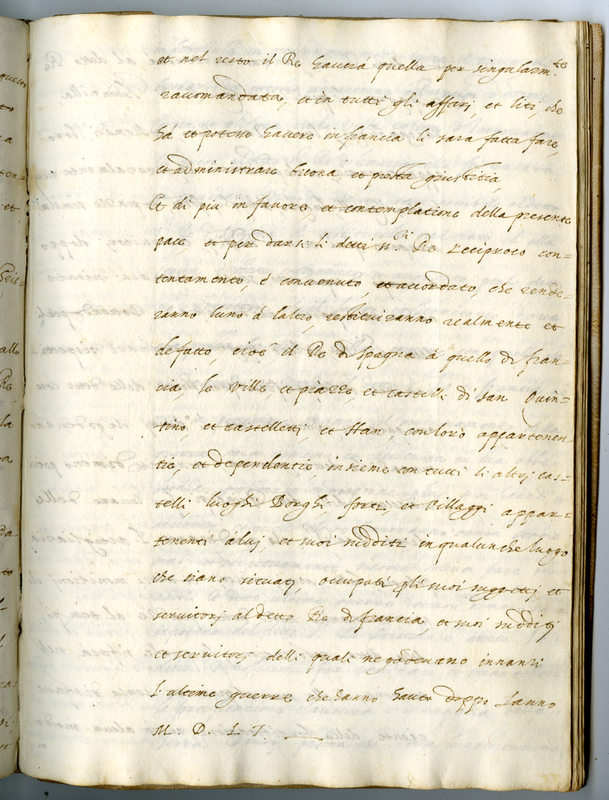 et nel resto il Re havera quella per singularm.te
racomandata, et in tutti gli affari, et liti che
ha et potesse havere in francia li sara fatta fare,
et administrare buona, et presta giustitia,
Et di piu in favore, et contemplatione della presente
pace, et per dare li detti s.ri Re reciproco con=
tentamento, é convenuto et accordato, che rende=
ranno luno á laltro, restituiranno realmente et
de fatto, cioé il Re di spagna á quello di fran=
cia, le ville, et piazze et castelli di san Quin=
tino, et castelletti et Han, con loro appartenen=
tie, et dependentie, insieme con tutti li altri cas=
telli luoghi Borghi forti, et Villaggi appar=
tenenti á lui et suoi sudditi in qualunche luogo
che siano situati, occupati gli suoi suggetti et
servitori al detto Re di francia, et suoi sudditi
et servitori delli quali ne godevano innanzi
l'ultime guerre che hanno havuto doppo lanno
M. D. L I.